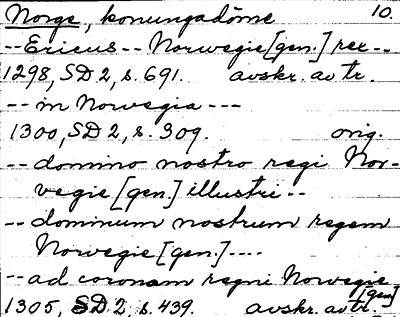 Norge, konungadöme 10.
-- Ericus -- Norwegie [gen.] rex --
1298, SD 2, s. 691. avskr. av tr.
-- in Norwegia ---
1300, SD 2, s. 309. orig.
-- domino nostro regi Nor-
vegie [gen.] illustri --
-- dominum nostrum regem
Norwegie [gen.] ----
-- ad coronam regni Norwegie
[gen]
1305, SD 2, s. 439. avskr. av tr.